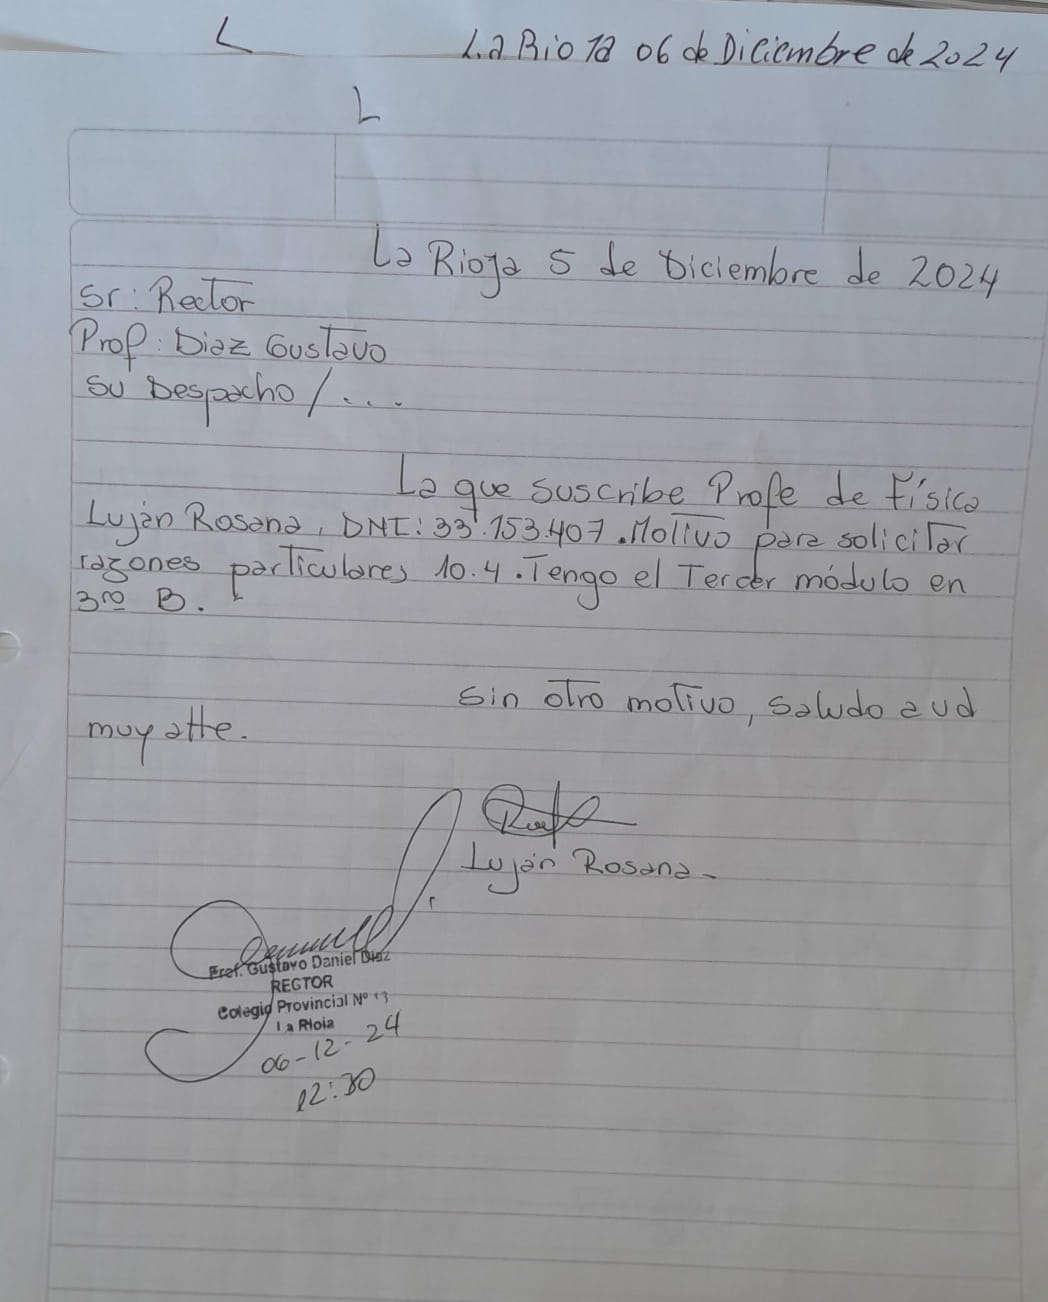 La Rioja 06 de Diciembre de 2024
La Rioja 5 de Diciembre de 2024
Sr: Rector
Prof: Diaz Gustavo
su Despacho/...
La que suscribe Profe de Física
Luján Rosana, DNI: 33.153.407. Motivo para solicitar
razones particulares 10.4. Tengo el Tercer módulo en
3ro B.
Sin otro motivo, saludo a ud
muy atte.
Luján Rosana-
Prof. Gustavo Daniel Diaz
RECTOR
Colegio Provincial Nº 13
La Rioja
06-12-24
12:30